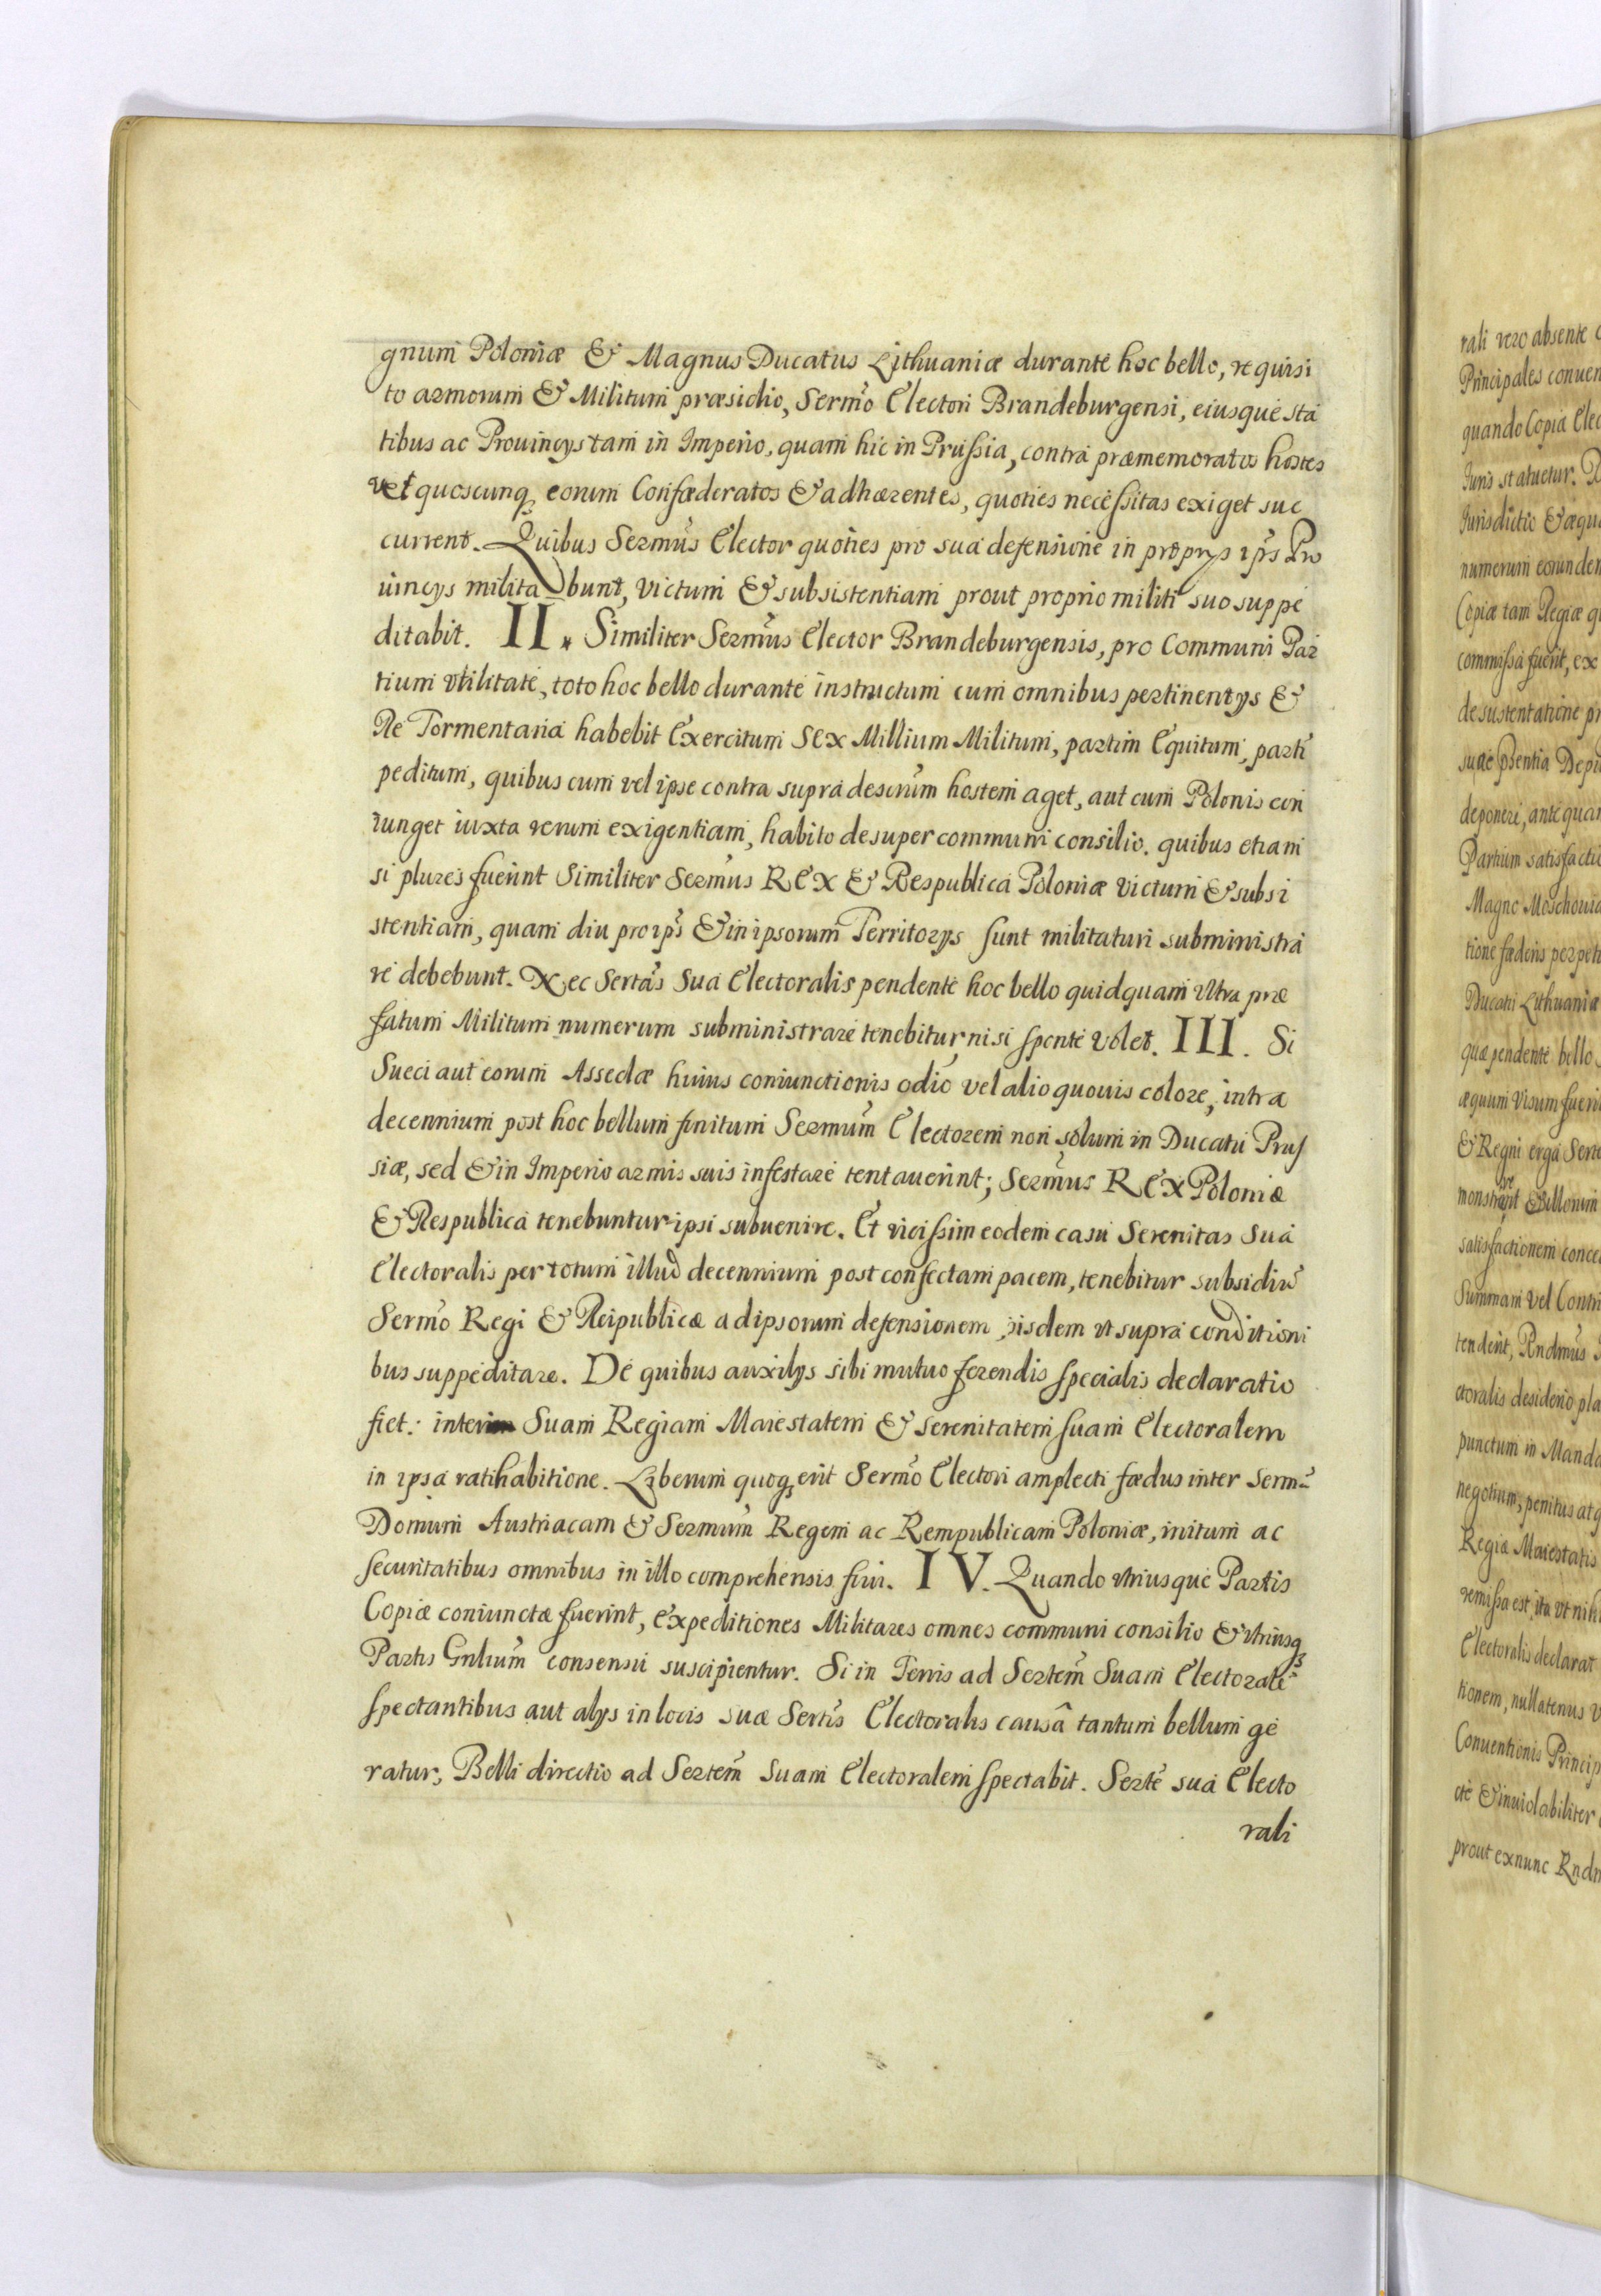 gnum Poloniæ & Magnus Ducatus Lithuaniæ durante hoc bello, requisi
to armorum & Militum præsidio, Sermo Electori Brandeburgensi, eiusque sta
tibus ac Prouincys tam in Imperio, quam hic in Prussia, contra præmemoratos hostes
vel quoscunq; eorum Confæderatos & adhærentes, quoties necessitas exiget suc
current. Quibus Sermus Elector quoties pro sua defensione in proprys ips Pro
uincys militabunt, victum & subsistentiam prout proprio militi suo suppe
ditabit. II. Similiter Sermus Elector Brandeburgensis, pro Communi Par
tium vtilitate, toto hoc bello durante instructum cum omnibus pertinentys &
Re Tormentaria habebit Exercitum Sex Millium Militum, partim Equitum, parti
peditum, quibus cum vel ipse contra supra descrum hostem aget, aut cum Polonis con
iunget iuxta rerum exigentiam, habito desuper communi consilio. quibus etiam
si plures fuerint Similiter Sermus REX & Respublica Poloniæ victum & subsi
stentiam, quam diu pro ips & in ipsorum Territorys sunt militaturi subministra
re debebunt. Nec Sertas Sua Electoralis pendente hoc bello quidquam vltra præ
fatum Militum numerum subministrare tenebitur nisi sponte volet. III. Si
Sueci aut eorum Asseclæ huius coniunctionis odio vel alio quouis colore, intra
decennium post hoc bellum finitum Sermum Electorem non solum in Ducatu Prus
siæ, sed & in Imperio armis suis infestare tentauerint; Sermus REX Poloniæ
& Respublica tenebuntur ipsi subuenire. Et vicissim eodem casu Serenitas Sua
Electoralis per totum illud decennium post confectam pacem, tenebitur subsidia
Sermo Regi & Reipublicæ ad ipsorum defensionem iisdem vt supra conditioni
bus suppeditare. De quibus auxilys sibi mutuo ferendis specialis declaratio
fiet: inter Suam Regiam Maiestatem & Serenitatem suam Electoralem
in ipsa ratihabitione. Liberum quoq; erit Sermo Electori amplecti fædus inter Serm
Domum Austriacam & Sermum Regem ac Rempublicam Poloniæ, initum ac
securitatibus omnibus in illo comprehensis frui. IV. Quando vtriusque Partis
Copiæ coniunctæ fuerint, expeditiones Militares omnes communi consilio & vtriusq;
Partis Gnlium consensu suscipientur. Si in Terris ad Sertem Suam Electorale
spectantibus aut alys in locis suæ Sertis Electoralis causâ tantum bellum ge
ratur, Belli directio ad Sertem Suam Electoralem spectabit. Serte sua Electo
rali
rali vero absente
Principales conuen
quando Copiæ Elec
Iuris statuetur.
Iurisdictio & æqu
numerum eorundem
Copiæ tam Regiæ q
commissa fuerit, ex
de sustentatione pr
suæ psentia Depu
deponeri, ante quam
Partium satisfactio
Magno Moschouiæ
tione fæderis perpet
Ducatu Lithuaniæ
quæ pendente bello
æquum visum fueri
& Regni erga Sert
satisfactionem conce
Summam vel Contri
tenderit, Rndmus
ctoralis desiderio pla
punctum in Manda
negotium, penitus atq
Regiæ Maiestatis
remissa est, ita vt nih
Electoralis declarat
tionem, nullatenus v
Conuentionis Princip
cte & inuiolabiliter
prout ex nunc Rndm